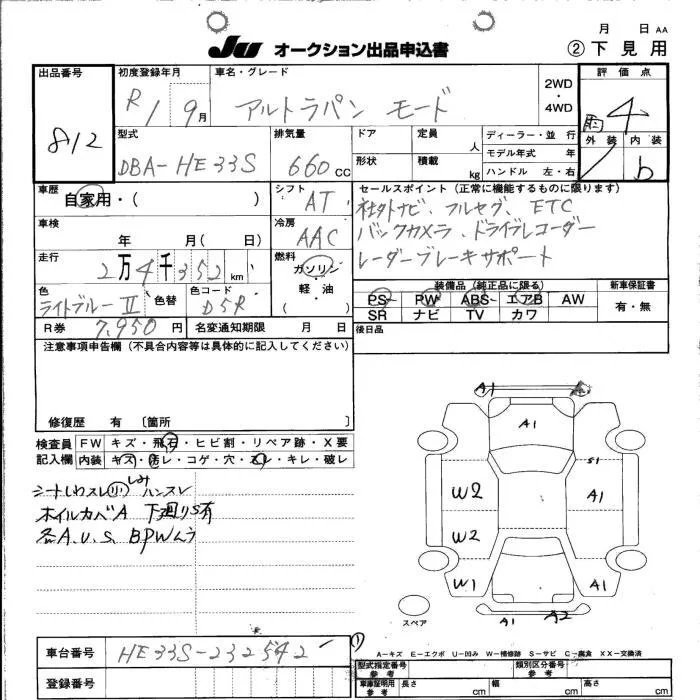 月 日 AA
JU オークション出品申込書 ②下見用
出品番号 812
初度登録年月 R1 9月
車名・グレード アルトラパン モード
2WD・4WD
評価点 4
外装 内装 b
型式 DBA-HE33S
排気量 660cc
ドア 定員 人
形状 積載 kg
ディーラー・並行
モデル年式 年
ハンドル 左・右
車歴 自家用・( )
シフト AT
セールスポイント(正常に機能するものに限ります)
社外ナビ、フルセグ、ETC
バックカメラ、ドライブレコーダー
レーダーブレーキサポート
車検 年 月( 日)
冷房 AAC
走行 2万4千352km
燃料 ガソリン・軽油( )
色 ライトブルーⅡ 色替
色コード D5R
装備品(純正品に限る) 新車保証書
PS PW ABS エアB AW 有・無
SR ナビ TV カワ
R券 7,950円 名変通知期限 月 日
後日品
注意事項申告欄(不具合内容等は具体的に記入してください)
修復歴 有 〔箇所 〕
検査員記入欄
FW キズ・飛石・ヒビ割・リペア跡・X要
内装 キズ・汚レ・コゲ・穴・スレ・キレ・破レ
シートしわスレ小 しみ ハンスレ
ホイルカバA 下廻りS有
各A.U.S. BPWんう
A1
A1
S1
W2 A1
W2
W1 A1
スペア
A1 A2
A-キズ E-エクボ U-凹み W-補修跡 S-サビ C-腐食 XX-交換済
車台番号 HE33S-232542
登録番号
型式指定番号 参考 類別区分番号 参考
車庫証明用 参考 長さ cm 幅 cm 高さ cm